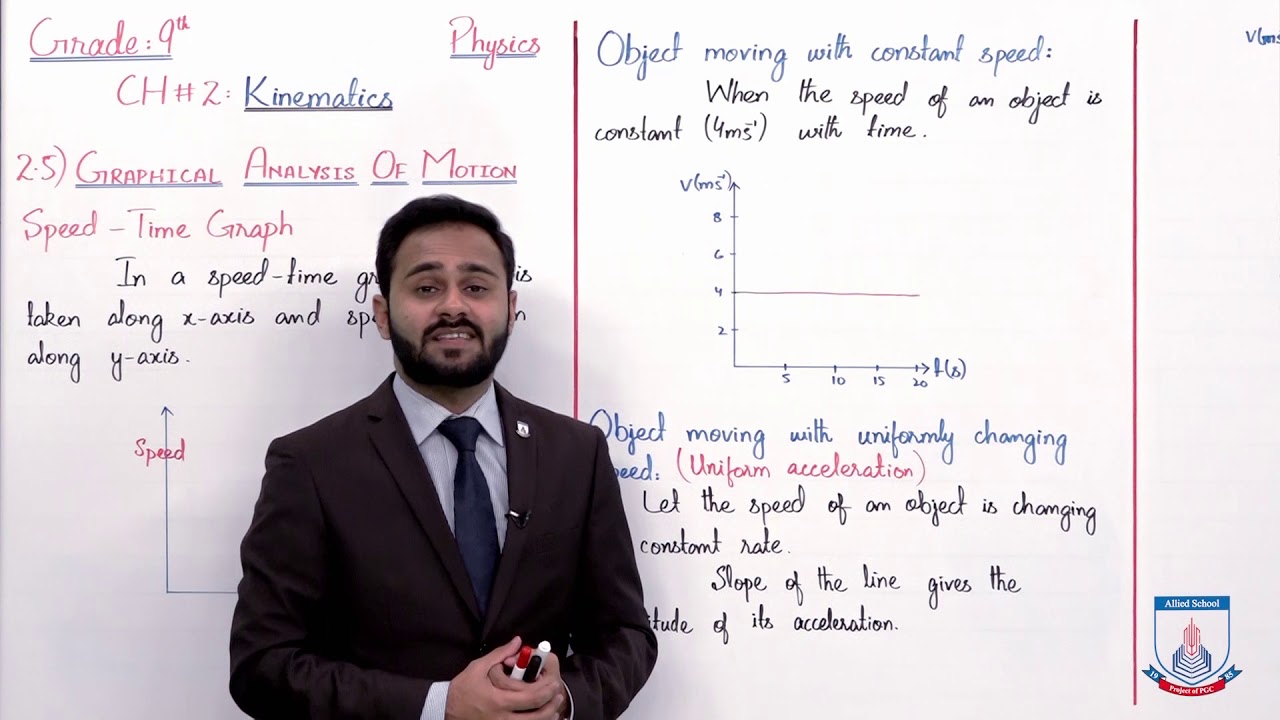 Grade: 9th
Physics
CH # 2: Kinematics
2.5) GRAPHICAL ANALYSIS OF MOTION
Speed - Time Graph
In a speed-time is
taken along x-axis and
along y-axis.
Speed
Object moving with constant speed:
When the speed of an object is
constant (4ms⁻¹) with time.
V(ms⁻¹)
8
6
4
2
5 10 15 20 t(s)
Object moving with uniformly changing
(Uniform acceleration)
Let the speed of an object is changing
constant rate.
Slope of the line gives the
of its acceleration.
Allied School
19 85
Project of PGC